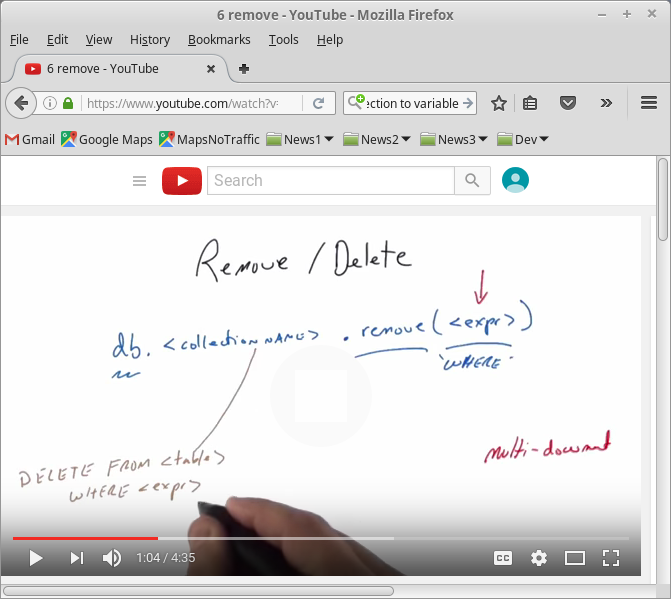 6 remove - YouTube - Mozilla Firefox
File Edit View History Bookmarks Tools Help
6 remove - YouTube
https://www.youtube.com/watch?v= ection to variable
Gmail Google Maps MapsNoTraffic News1 News2 News3 Dev
Search
Remove / Delete
db. <collection NAME> . remove ( <expr> )
"WHERE"
multi-document
DELETE FROM <table>
WHERE <expr>
1:04 / 4:35 CC